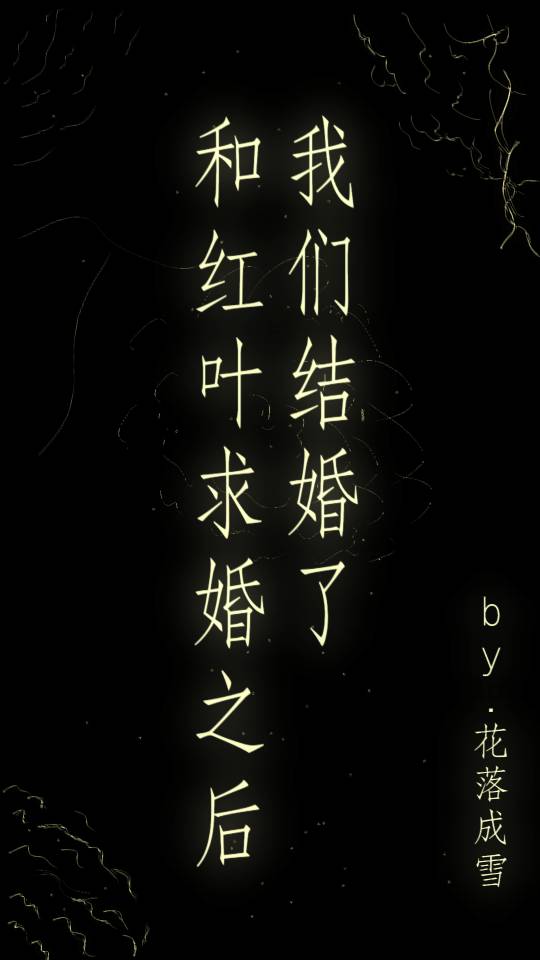 和红叶求婚之后
我们结婚了
by.花落成雪